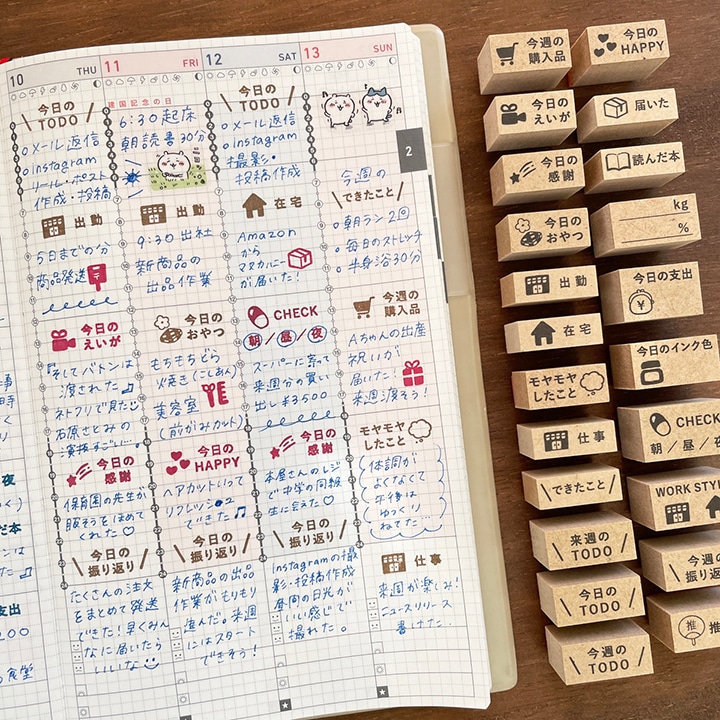 10 THU
今日の
TODO
○メール返信
○instagram
リール・ポスト
作成・投稿
出勤
5日までの分
商品発送
今日の
えいが
『そしてバトンは
渡された』
ネトフリで見た
石原さとみの
演技すごい。
今日の
感謝
保育園の先生が
服そうをほめて
くれた♡
今日の
振り返り
たくさんの注文
をまとめて発送
できた!早くみん
なに届いたら
いいな
11 FRI
建国記念の日
6:30 起床
朝読書30分
出勤
9:30 出社
新商品の
出品作業
今日の
おやつ
もちもちどら
焼き(こしあん)
美容室
(前がみカット)
今日の
HAPPY
ヘアカットいって
リフレッシュ
できた♫
今日の
振り返り
新商品の出品
作業がもりもり
進んだ。来週
にはスタート
できそう!
12 SAT
今日の
TODO
○メール返信
○instagram
撮影・
投稿作成
在宅
Amazon
から
マヌカハニー
が届いた!
CHECK
朝/昼/夜
スーパーに寄って
来週分の買い
出し¥3500
今日の
感謝
本屋さんのレジ
で中学の同級
生に会えた♡
今日の
振り返り
Instagramの撮
影・投稿作成
昼間の日光が
いい感じで
撮れた。
13 SUN
2
今週の
できたこと
○朝ラン2回
○毎日のストレッチ
○半身浴30分
今週の
購入品
Aちゃんの出産
祝いが
届いた!
来週渡そう!
モヤモヤ
したこと
体調が
よくなくて
午後は
ゆっくり
ねてた
仕事
来週が楽しみ!
ニュースリリース
書けた。
夜
だ本
支出
食堂
今週の
購入品
今日の
えいが
今日の
感謝
今日の
おやつ
出勤
在宅
モヤモヤ
したこと
仕事
できたこと
来週の
TODO
今日の
TODO
今週の
TODO
今日の
HAPPY
届いた
読んだ本
kg
%
今日の支出
今日のインク色
CHECK
朝/昼/夜
WORK STYLE
今週の
振り返り
推
推